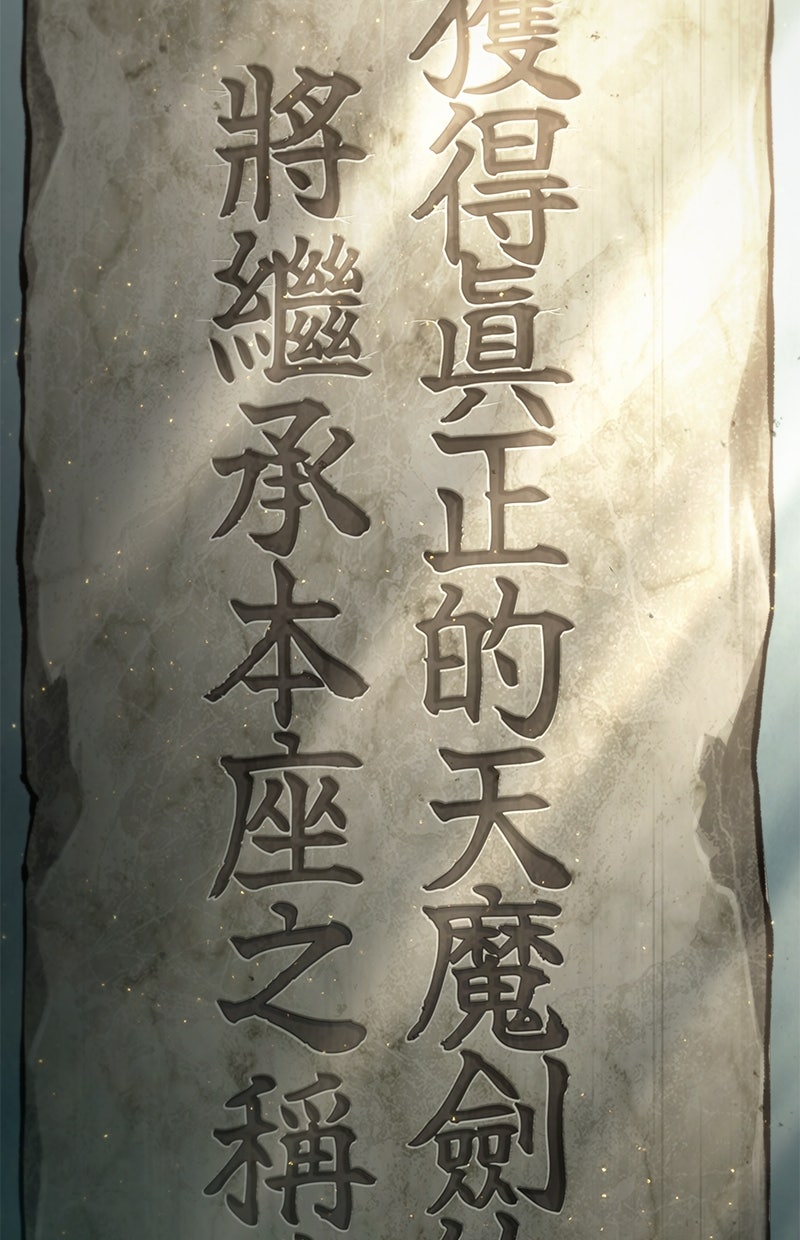 獲得眞正的天魔劍
將繼承本座之稱